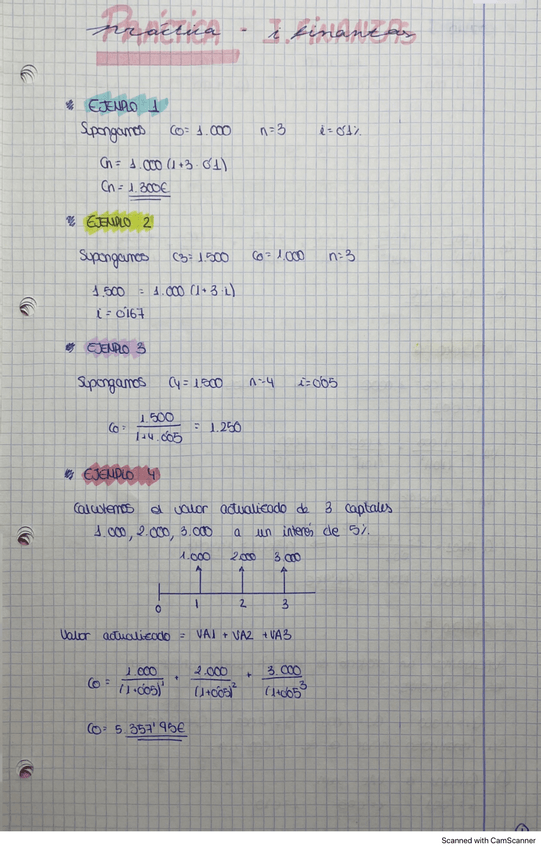 PRÁCTICA - I. FINANZAS
práctica - i finanzas
* EJEMPLO 1
Supongamos C0 = 1.000 n = 3 i = 0'1%
Cn = 1.000 (1+3·0'1)
Cn = 1.300€
* EJEMPLO 2
Supongamos C3 = 1.500 C0 = 1.000 n = 3
1.500 = 1.000 (1+3·i)
i = 0'167
* EJEMPLO 3
Supongamos C4 = 1.500 n = 4 i = 0'05
C0 = 1.500 / 1+4·0'05 = 1.250
* EJEMPLO 4
Calculemos el valor actualizado de 3 capitales
1.000, 2.000, 3.000 a un interés de 5%.
1.000 2.000 3.000
0 1 2 3
Valor actualizado = VA1 + VA2 + VA3
C0 = 1.000 / (1+0'05)¹ + 2.000 / (1+0'05)² + 3.000 / (1+0'05³
C0 = 5.357'95€
Scanned with CamScanner